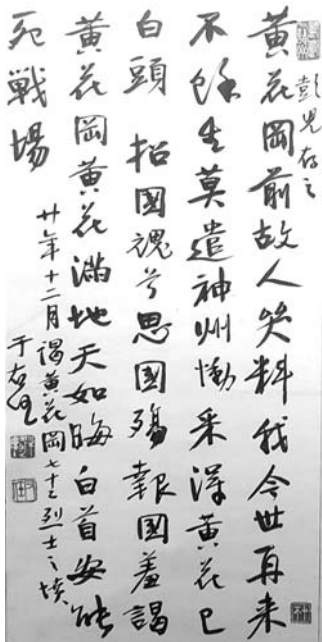 彭兒存之
黄花岡前故人笑料我今世再来
不餘生莫遣神州慟采得黄花已
白頭 招國魂兮思國殤報國羞謁
黄花岡黄花滿地天如晦白首安能
死戰場
廿年十二月謁黄花岡七十二烈士之墳
于右任